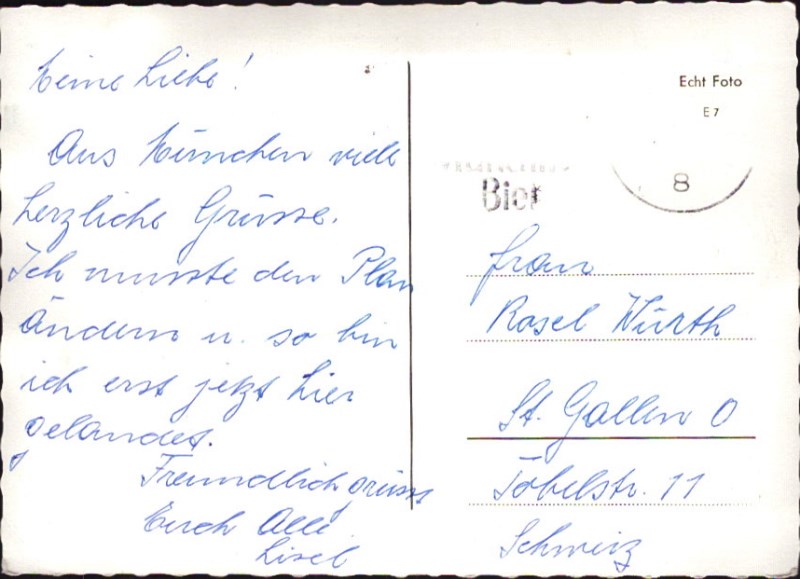 Meine Liebe!
Aus München viele
herzliche Grüsse.
Ich musste den Plan
ändern u. so bin
ich erst jetzt hier
gelandet.
Freundlich grüsst
Euch Alle
Lisel
Echt Foto
E 7
Bier
8
Frau
Rosel Würth
St. Gallen O
Tobelstr. 11
Schweiz